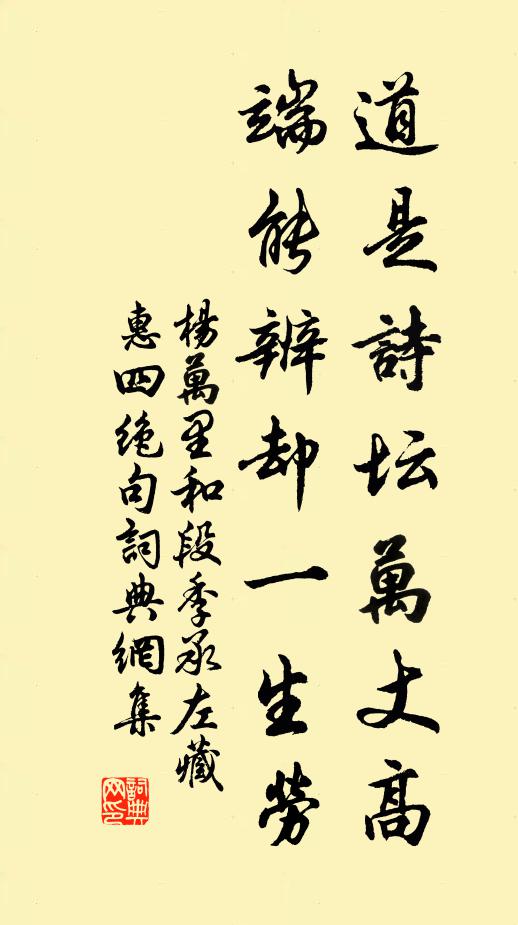 道是詩坛萬丈高
端能辦却一生勞
楊萬里和段季承左藏
惠四絶句詞典網集
詞典
网印